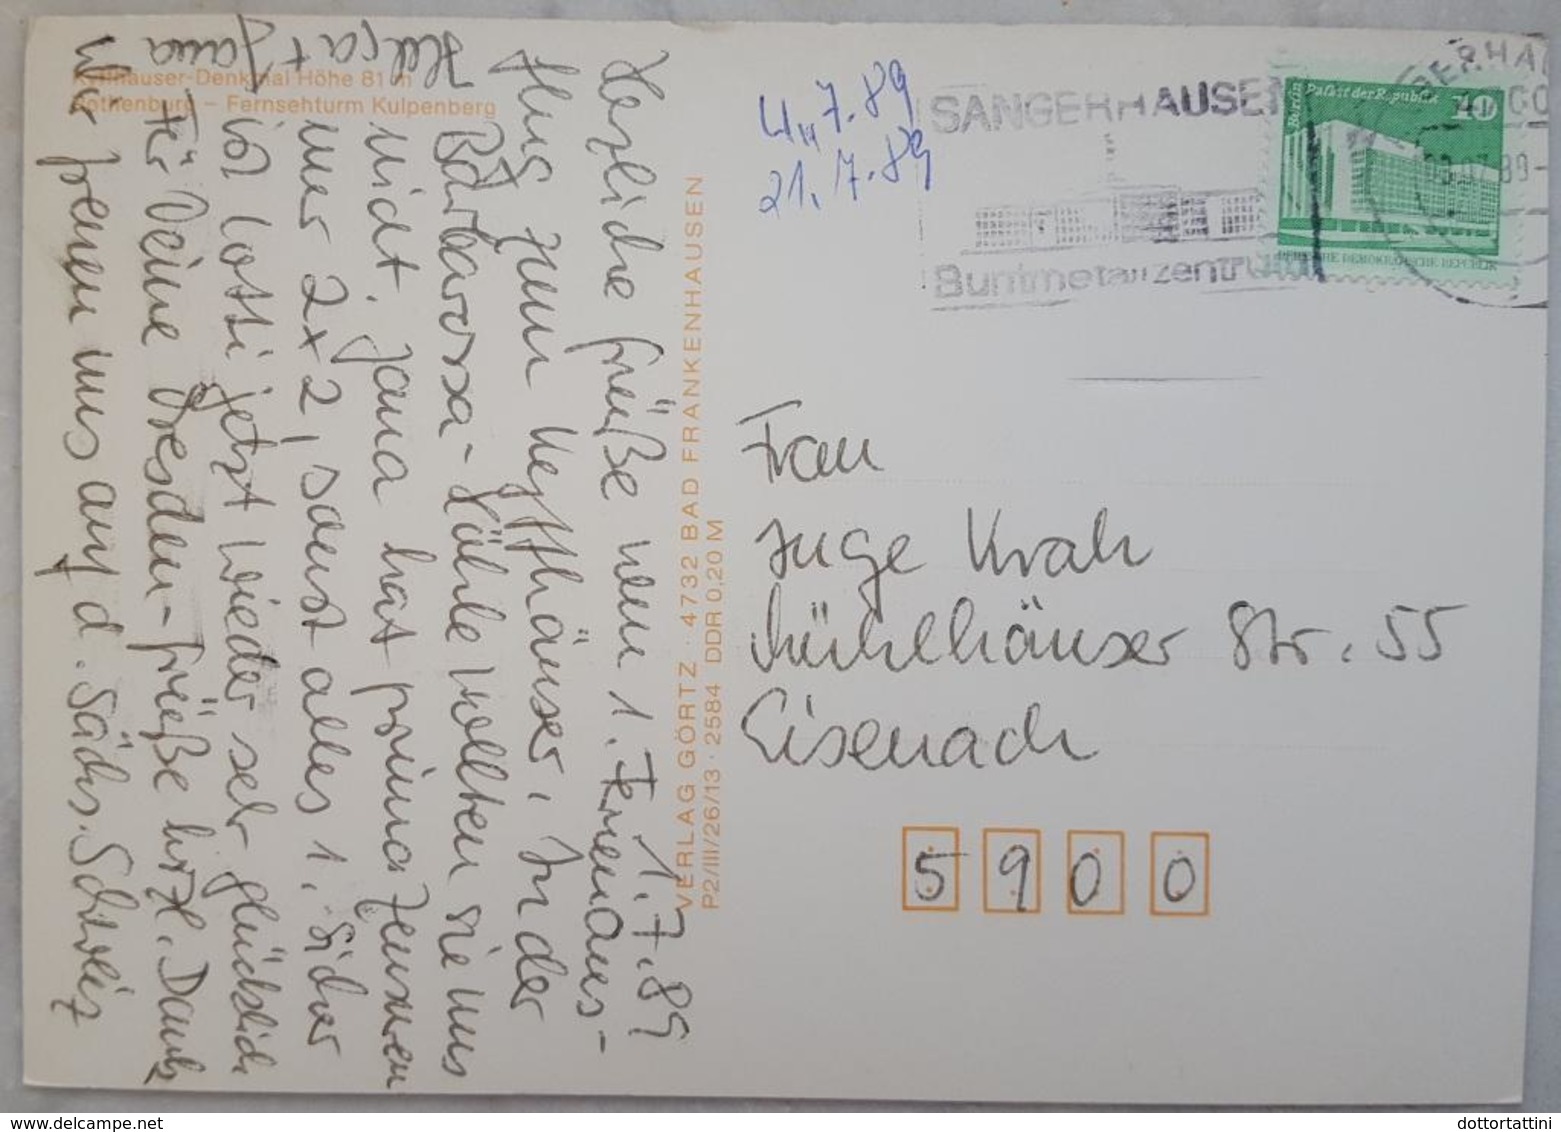 Kyffhäuser-Denkmal Höhe 81 m
Rothenburg – Fernsehturm Kulpenberg
1.7.89
Herzliche Grüße vom 1. Ferienaus-
flug zum Kyffhäuser. In der
Barbarossa-Höhle wollten sie uns
nicht. Jana hat prima Zensuren
nur 2x2, sonst alles 1. Sicher
ist Lotti jetzt wieder sehr glücklich
Für Deine Dresden-Grüße herzl. Dank
Wir freuen uns auf d. Sächs. Schweiz
Helga + Jana
VERLAG GÖRTZ · 4732 BAD FRANKENHAUSEN
P2/III/26/13 · 2584 DDR 0,20 M
4.7.89
21.7.89
SANGERHAUSEN
Buntmetallzentrum
Berlin Palast der Republik
10
DEUTSCHE DEMOKRATISCHE REPUBLIK
Frau
Inge Krah
Mühlhäuser Str. 55
Eisenach
5900
delcampe.net
dottortattini